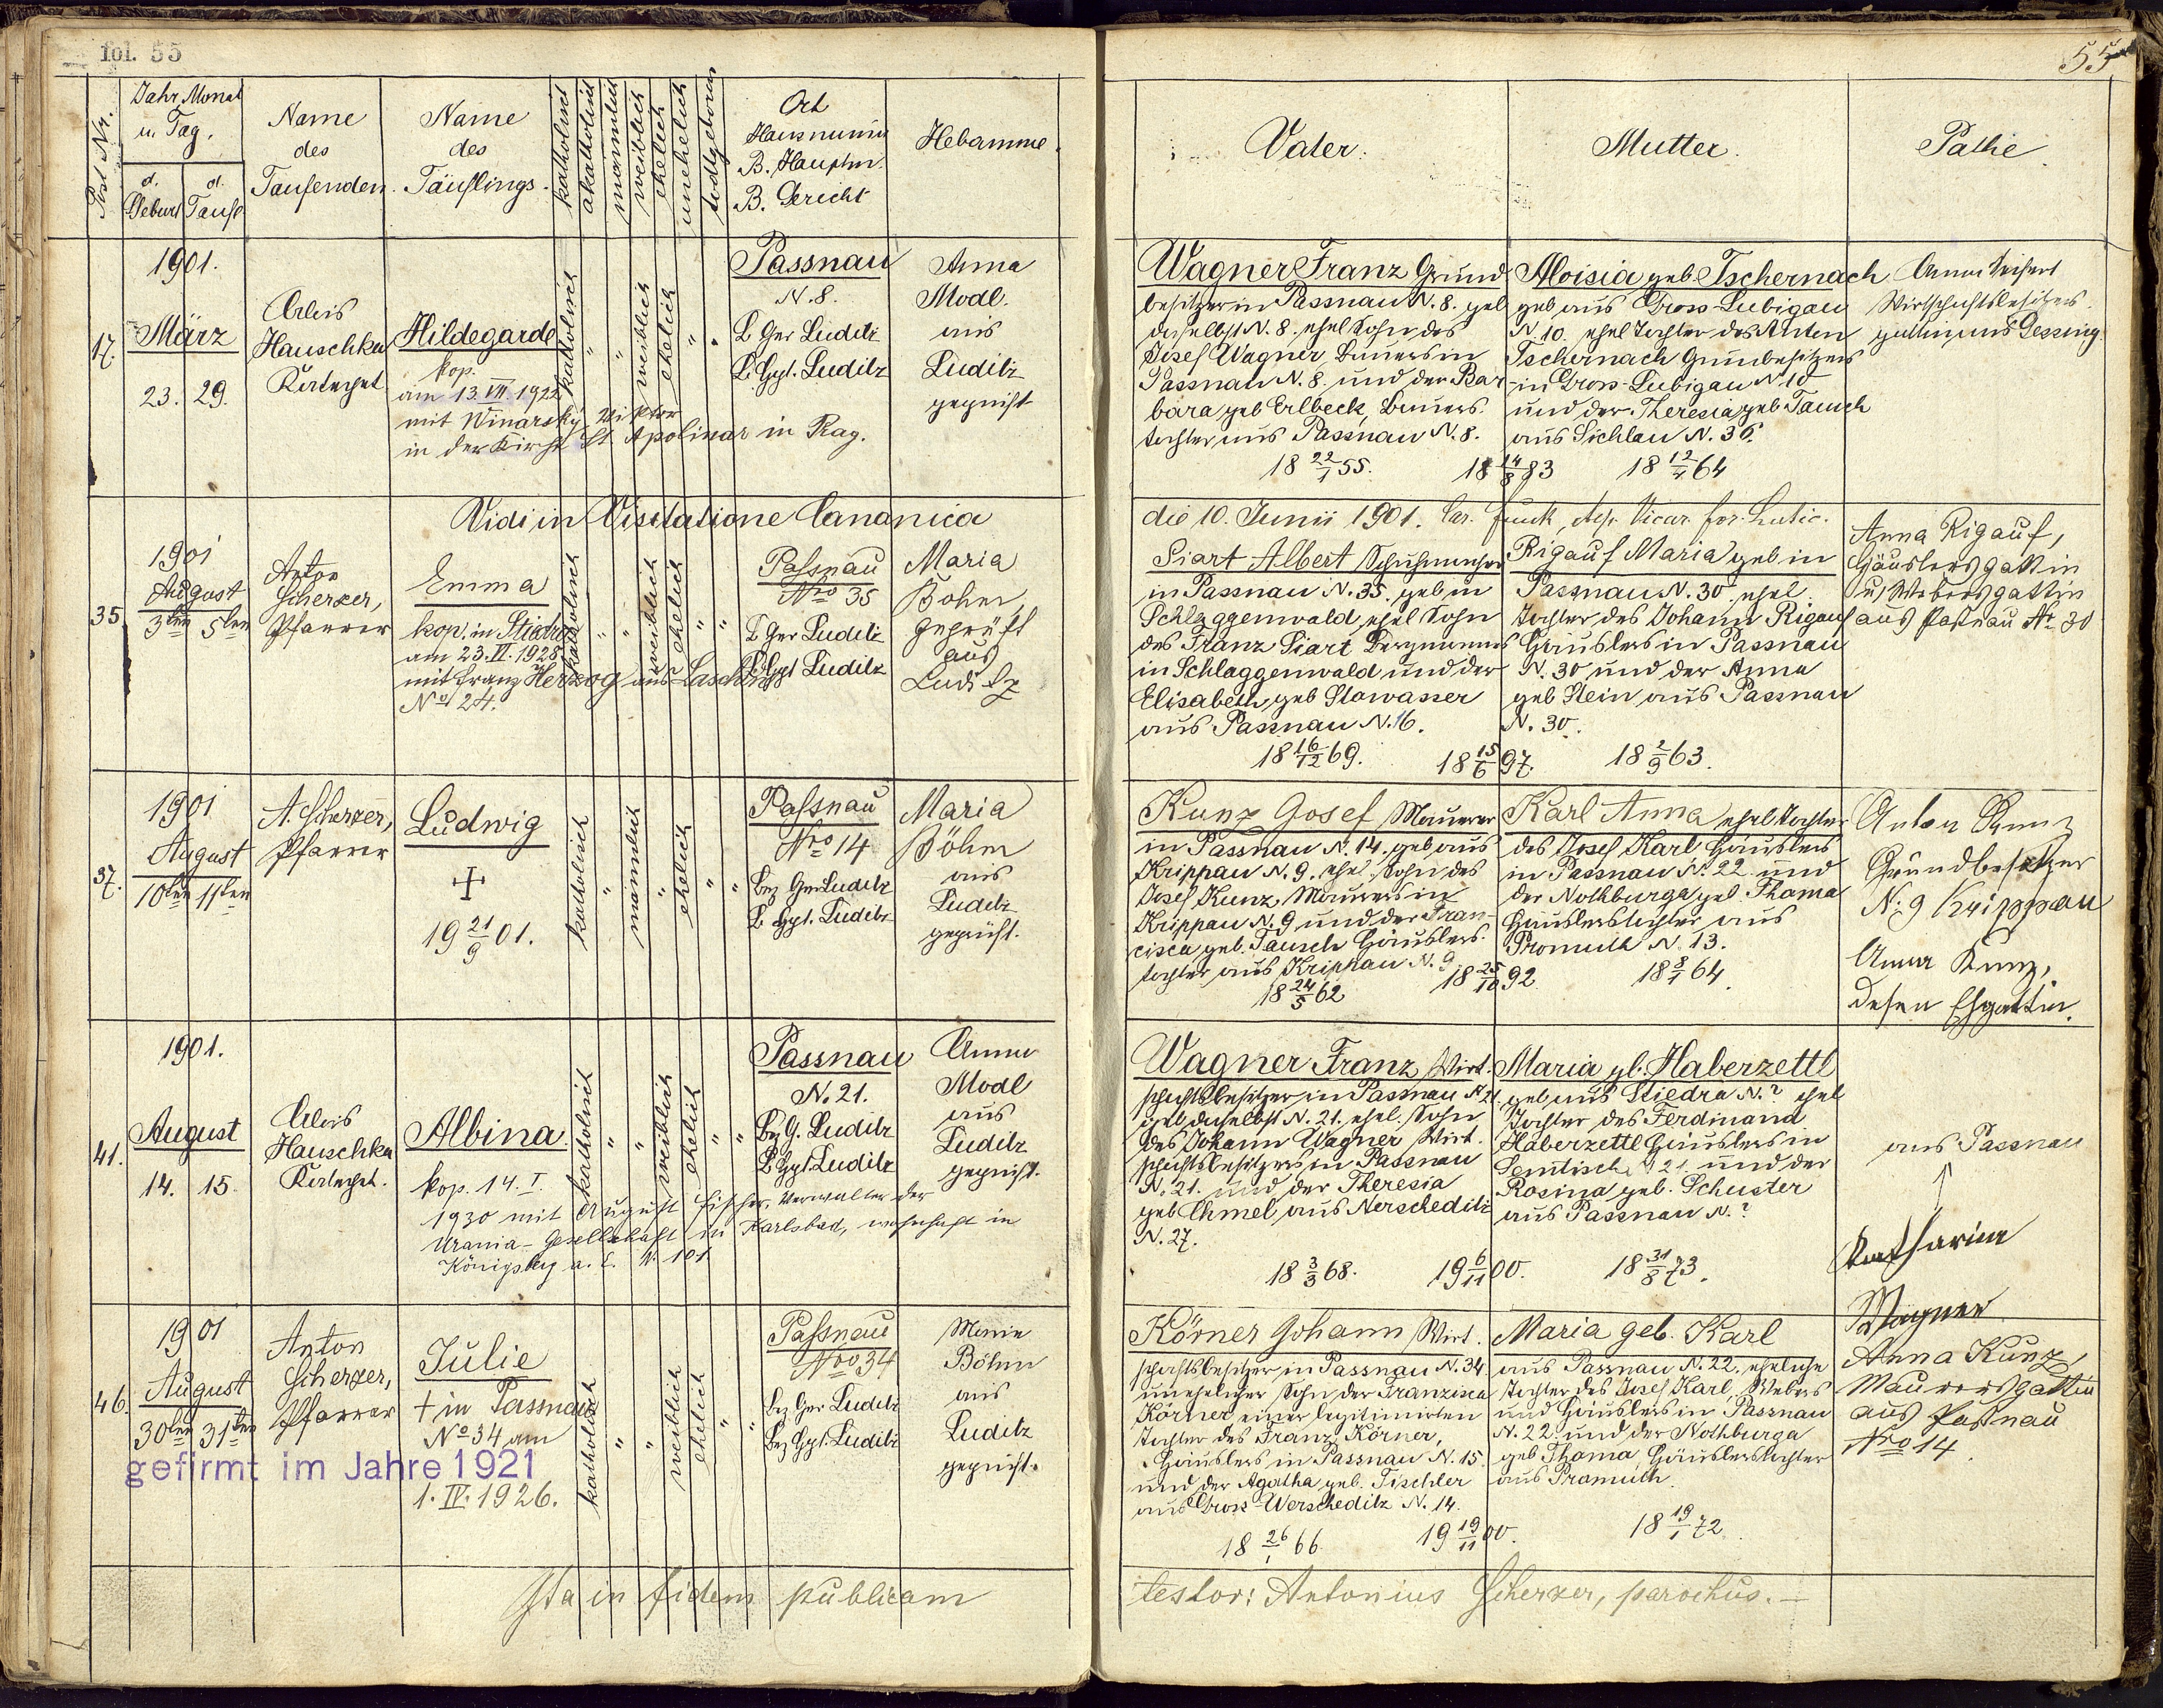 fol. 55
55
Post Nr.
Jahr, Monat
u. Tag.
d. Geburt
d. Taufe
Name
des
Taufenden.
Name
des
Täuflings.
katholisch
akatholisch
männlich
weiblich
ehelich
unehelich
todtgeboren
Ort
Hausnumm
B. Hauptm.
B. Gericht
Hebamme.
Vater.
Mutter.
Pathe.
17.
1901.
März
23. 29.
Alois
Hauschka
Hildegarde
kop.
am 13. VII. 1922
mit Winarsky Viktor
in der Kirche St. Apolinar in Prag.
katholisch
"
"
weiblich
ehelich
"
"
Passnau
N. 8.
B. Ger Luditz
B. Hptm. Luditz
Anna
Modl.
aus
Luditz
geprüft
Wagner Franz Grund
besitzer in Passnau N. 8. geb
daselbst N. 8. ehel Sohn des
Josef Wagner, Bauers in
Passnau N. 8. und der Bar-
bara geb Erlbeck, Bauers.
tochter aus Passnau N. 8.
18 22/1 55.
18 14/8 83
Aloisia geb. Tschernach
geb aus Gross-Lubigau
N 10. ehel Tochter des Anton
Tschernach Grundbesitzers
in Gross-Lubigau N 10
und der Theresia geb Tausch
aus Sichlau N. 36.
18 12/4 64
Wirtschaftsbesitzers
gattin aus Gessing.
Vidi in Visitatione Canonica
die 10. Junii 1901.
35
1901
August
3ten 5ten
Anton
Scherzer,
Pfarrer
Emma
kop. in Stiedra
am 23. II. 1928
mit Franz Herzog aus
No 24.
katholisch
"
"
weiblich
ehelich
"
"
Passnau
Nro 35
B Ger Luditz
B. Hptm Luditz
Maria
Böhm,
geprüft
aus
Luditz
Siart Albert Schuhmacher
in Passnau N. 35. geb in
Schlaggenwald, ehel Sohn
des Franz Siart Bergmannes
in Schlaggenwald und der
Elisabeth, geb Stowasser
aus Passnau N. 16.
18 16/12 69.
18 15/6 97.
Rigauf Maria geb in
Passnau N. 30, ehel.
Tochter des Johann Rigauf
Häuslers in Passnau
N. 30 und der Anna
geb Stein aus Passnau
N. 30.
18 2/9 63.
Anna Rigauf,
Häuslersgattin
u. Webersgattin
aus Passnau No 30
37.
1901
August
10ten 11ten
A. Scherzer,
Pfarrer
Ludwig
+
19 21/9 01.
katholisch
"
männlich
"
ehelich
"
"
Passnau
Nro 14
Bez Ger Luditz
B. Hptm. Luditz
Maria
Böhm
aus
Luditz
geprüft.
Kunz Josef Maurer
in Passnau N. 14. geb aus
Krippau N. 9. ehel Sohn des
Josef Kunz, Maurers in
Krippau N. 9 und der Fran-
cisca geb. Tausch Häuslers.
tochter aus Krippau N. 9
18 24/5 62
18 25/10 92
Karl Anna ehel Tochter
des Josef Karl Häuslers
in Passnau N. 22 und
der Nothburga geb Thoma
Häuslerstochter aus
Promuth N. 13.
18 8/1 64.
Anton Kunz
Grundbesitzer
N. 9 Krippau
Anna Kunz,
dessen Ehgattin.
41.
1901.
August
14. 15.
Alois
Hauschka
Albina.
kop. 14. I.
1930 mit August Fischer, Verwalter der
Urania-Gesellschaft in Karlsbad, wohnhaft in
Königsberg a. E. N. 101
katholisch
"
"
weiblich
ehelich
"
"
Passnau
N. 21.
Bez G. Luditz
B Hptm. Luditz
Anna
Modl
aus
Luditz
geprüft.
Wagner Franz, Wirt-
schaftsbesitzer in Passnau N 21.
geb daselbst N. 21. ehel. Sohn
des Johann Wagner Wirt.
schaftsbesitzers in Passnau
N. 21. und der Theresia
geb Chmel aus Nerscheditz
N. 27.
18 3/3 68.
19 6/11 00.
Maria gb. Haberzettl
geb aus Stiedra N.? ehel
Tochter des Ferdinand
Haberzettl Häuslers in
Semtisch N 21. und der
Rosina geb. Schuster
aus Passnau N.?
18 31/8 73.
aus Passnau
Katharina
Wagner
46.
1901
August
30ten 31ten
Anton
Scherzer,
Pfarrer
Julie
+ in Passnau
No 34 am
1. IV. 1926.
gefirmt im Jahre 1921
katholisch
"
"
weiblich
ehelich
"
"
Passnau
Nro 34
Bez Ger Luditz
Bez Hptm. Luditz
Maria
Böhm
aus
Luditz
geprüft.
Körner Johann, Wirt.
schaftsbesitzer in Passnau N. 34.
unehelicher Sohn der Franzisca
Körner, einer legitimirten
Tochter des Franz Körner,
Häuslers in Passnau N. 15.
und der Agatha geb. Tischler
aus Gross-Werscheditz N. 14.
18 26/1 66.
19 19/11 00.
Maria geb. Karl
aus Passnau N. 22. eheliche
Tochter des Josef Karl, Webers
und Häuslers in Passnau
N. 22. und der Nothburga
geb Thoma, Häuslerstochter
aus Pramuth.
18 19/1 72
Anna Kunz,
Maurersgattin
aus Passnau
Nro 14.
Ita in fidem publicam
testor: Antonius Scherzer, parochus.—